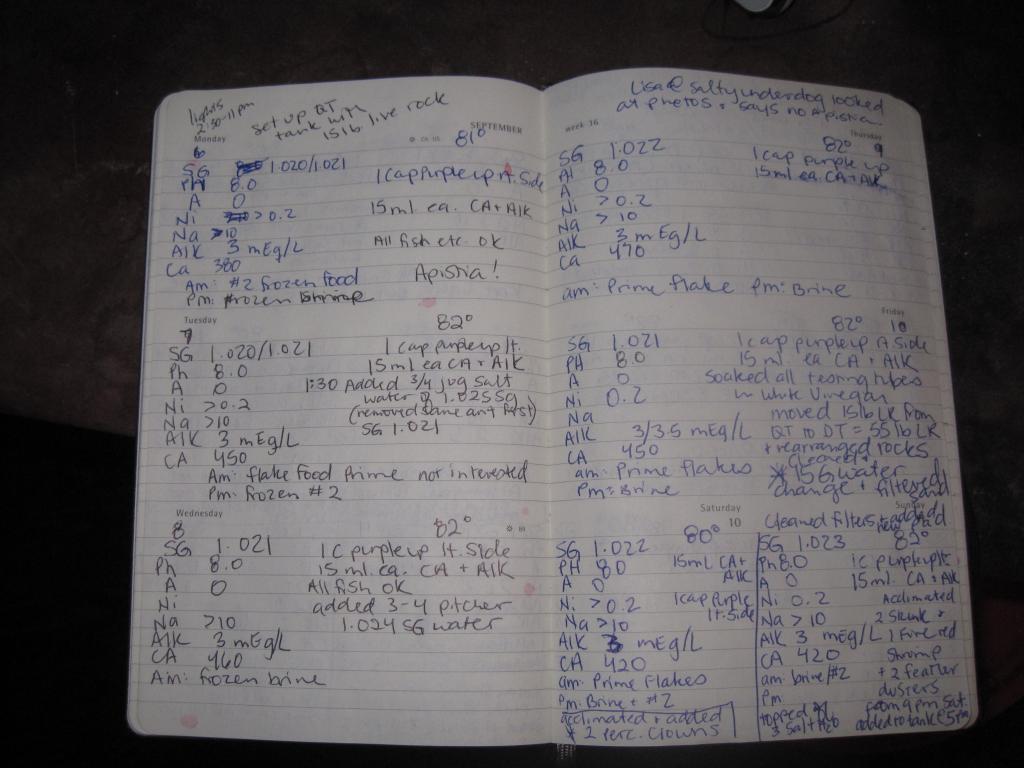 lights
2:30-11pm
set up QT
tank with
15lb live rock
SEPTEMBER
Monday
6
81°
SG 1.020/1.021
PH 8.0
1 cap Purple up rt. Side
A 0
Ni > 0.2
15ml ea. CA + Alk
Na > 10
Alk 3 mEg/L
All fish etc. ok
Ca 380
Am: #2 frozen food
Apistia!
Pm: frozen Shrimp
Tuesday
7
82°
SG 1.020/1.021
1 cap purple up lt.
Ph 8.0
15ml ea CA + Alk
A 0
1:30 Added 3/4 jug salt
Ni > 0.2
water @ 1.025 SG
Na > 10
(removed same amt first)
Alk 3 mEg/L
SG 1.021
CA 450
Am: flake food Prime not interested
Pm: frozen #2
Wednesday
8
82°
SG 1.021
1 C purple up lt. Side
Ph 8.0
15ml. ea. CA + Alk
A 0
All fish OK
Ni
added 3-4 pitcher
Na > 10
1.024 SG water
Alk 3 mEg/L
CA 460
Am: frozen brine
Lisa @ saltyunderdog looked
at photos + says no Apistia.
week 36
Thursday
9
82°
SG 1.022
1 cap purple up
PH 8.0
15ml ea. CA + Alk
A 0
Ni > 0.2
Na > 10
Alk 3 mEg/L
Ca 470
am: Prime flake pm: Brine
Friday
10
82°
SG 1.021
1 cap purple up
PH 8.0
15ml ea CA + Alk
A 0
soaked all testing tubes
Ni 0.2
in white vinegar
Na
moved 15lb LR from
Alk 3/3.5 mEg/L
QT to DT = 55 lb LR
CA 450
+ rearranged rocks
am: Prime flakes
cleaned
* 15G water
Pm: Brine
change + filtered
sand.
Saturday
10
80°
SG 1.022
PH 8.0
15ml CA +
Alk
A 0
Ni > 0.2
1 cap Purple
lt. Side
Na > 10
Alk 3 mEg/L
CA 420
am: Prime Flakes
Pm: Brine + #2
acclimated + added
* 2 Perc. Clowns
Sunday
Cleaned filters + added
82°
SG 1.023
Ph 8.0
1 C purple up lt
A 0
15ml. CA + Alk
Ni 0.2
Acclimated
Na > 10
2 Skunk +
Alk 3 mEg/L
1 Fire red
CA 420
Shrimp
am: brine/#2
+ 2 feather
Pm
dusters
from 9pm Sat.
topped
3 Salt H2O
added to tank @ 5pm